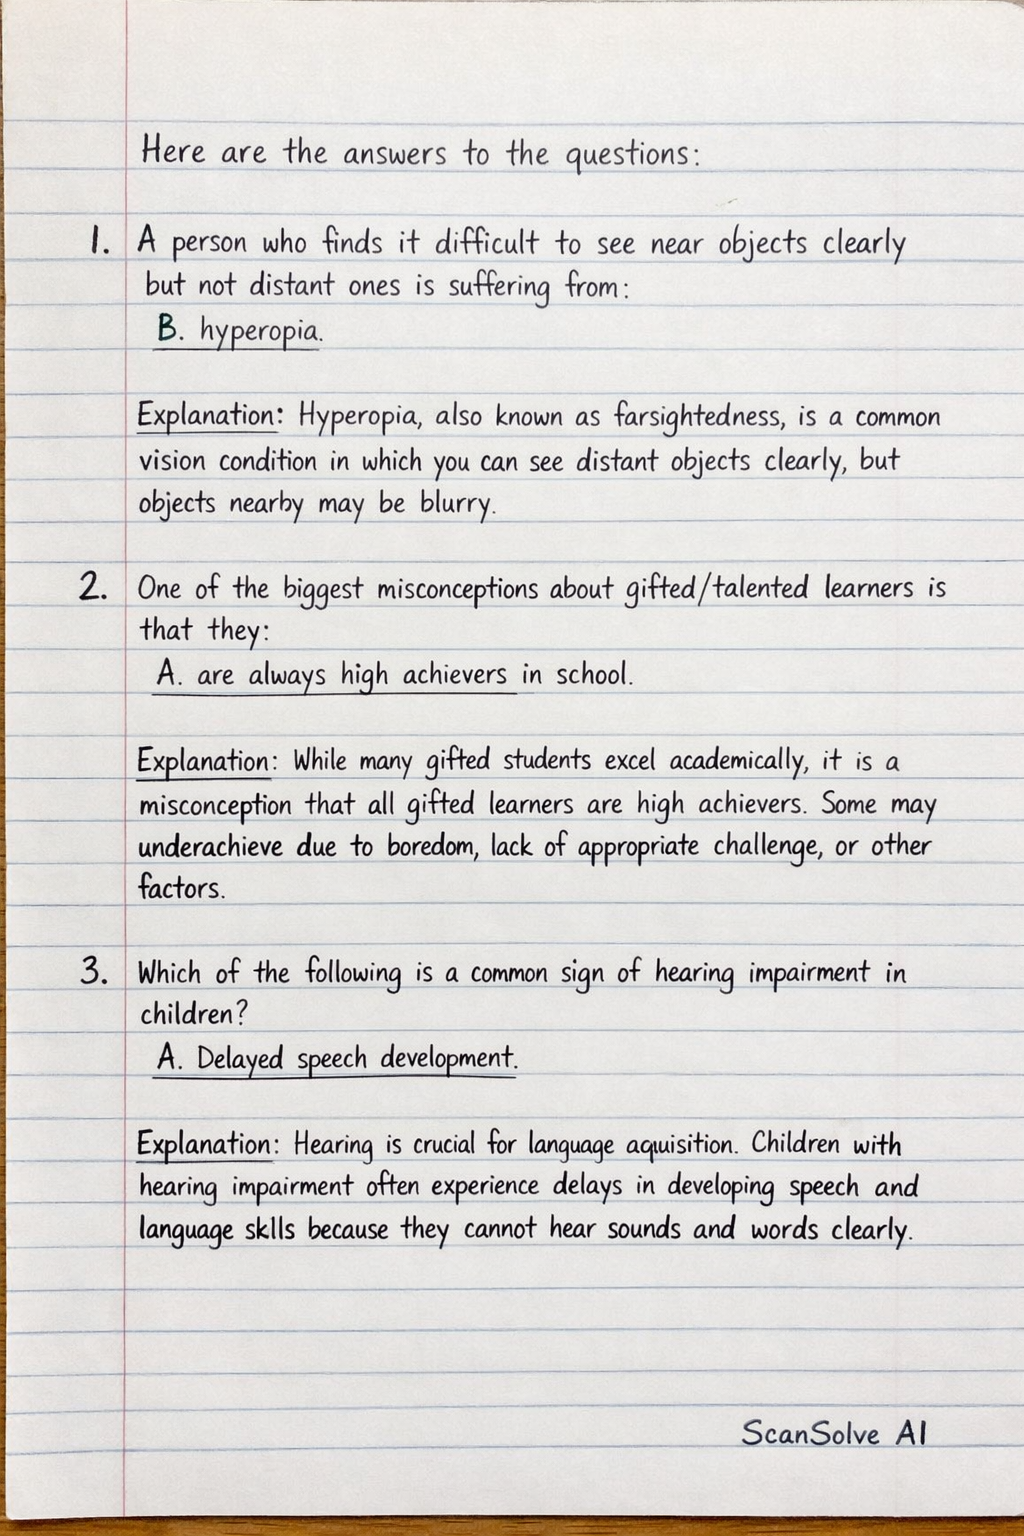 Here are the answers to the questions:
1. A person who finds it difficult to see near objects clearly
but not distant ones is suffering from:
B. hyperopia.
Explanation: Hyperopia, also known as farsightedness, is a common
vision condition in which you can see distant objects clearly, but
objects nearby may be blurry.
2. One of the biggest misconceptions about gifted/talented learners is
that they:
A. are always high achievers in school.
Explanation: While many gifted students excel academically, it is a
misconception that all gifted learners are high achievers. Some may
underachieve due to boredom, lack of appropriate challenge, or other
factors.
3. Which of the following is a common sign of hearing impairment in
children?
A. Delayed speech development.
Explanation: Hearing is crucial for language acquisition. Children with
hearing impairment often experience delays in developing speech and
language sklls because they cannot hear sounds and words clearly.
ScanSolve AI